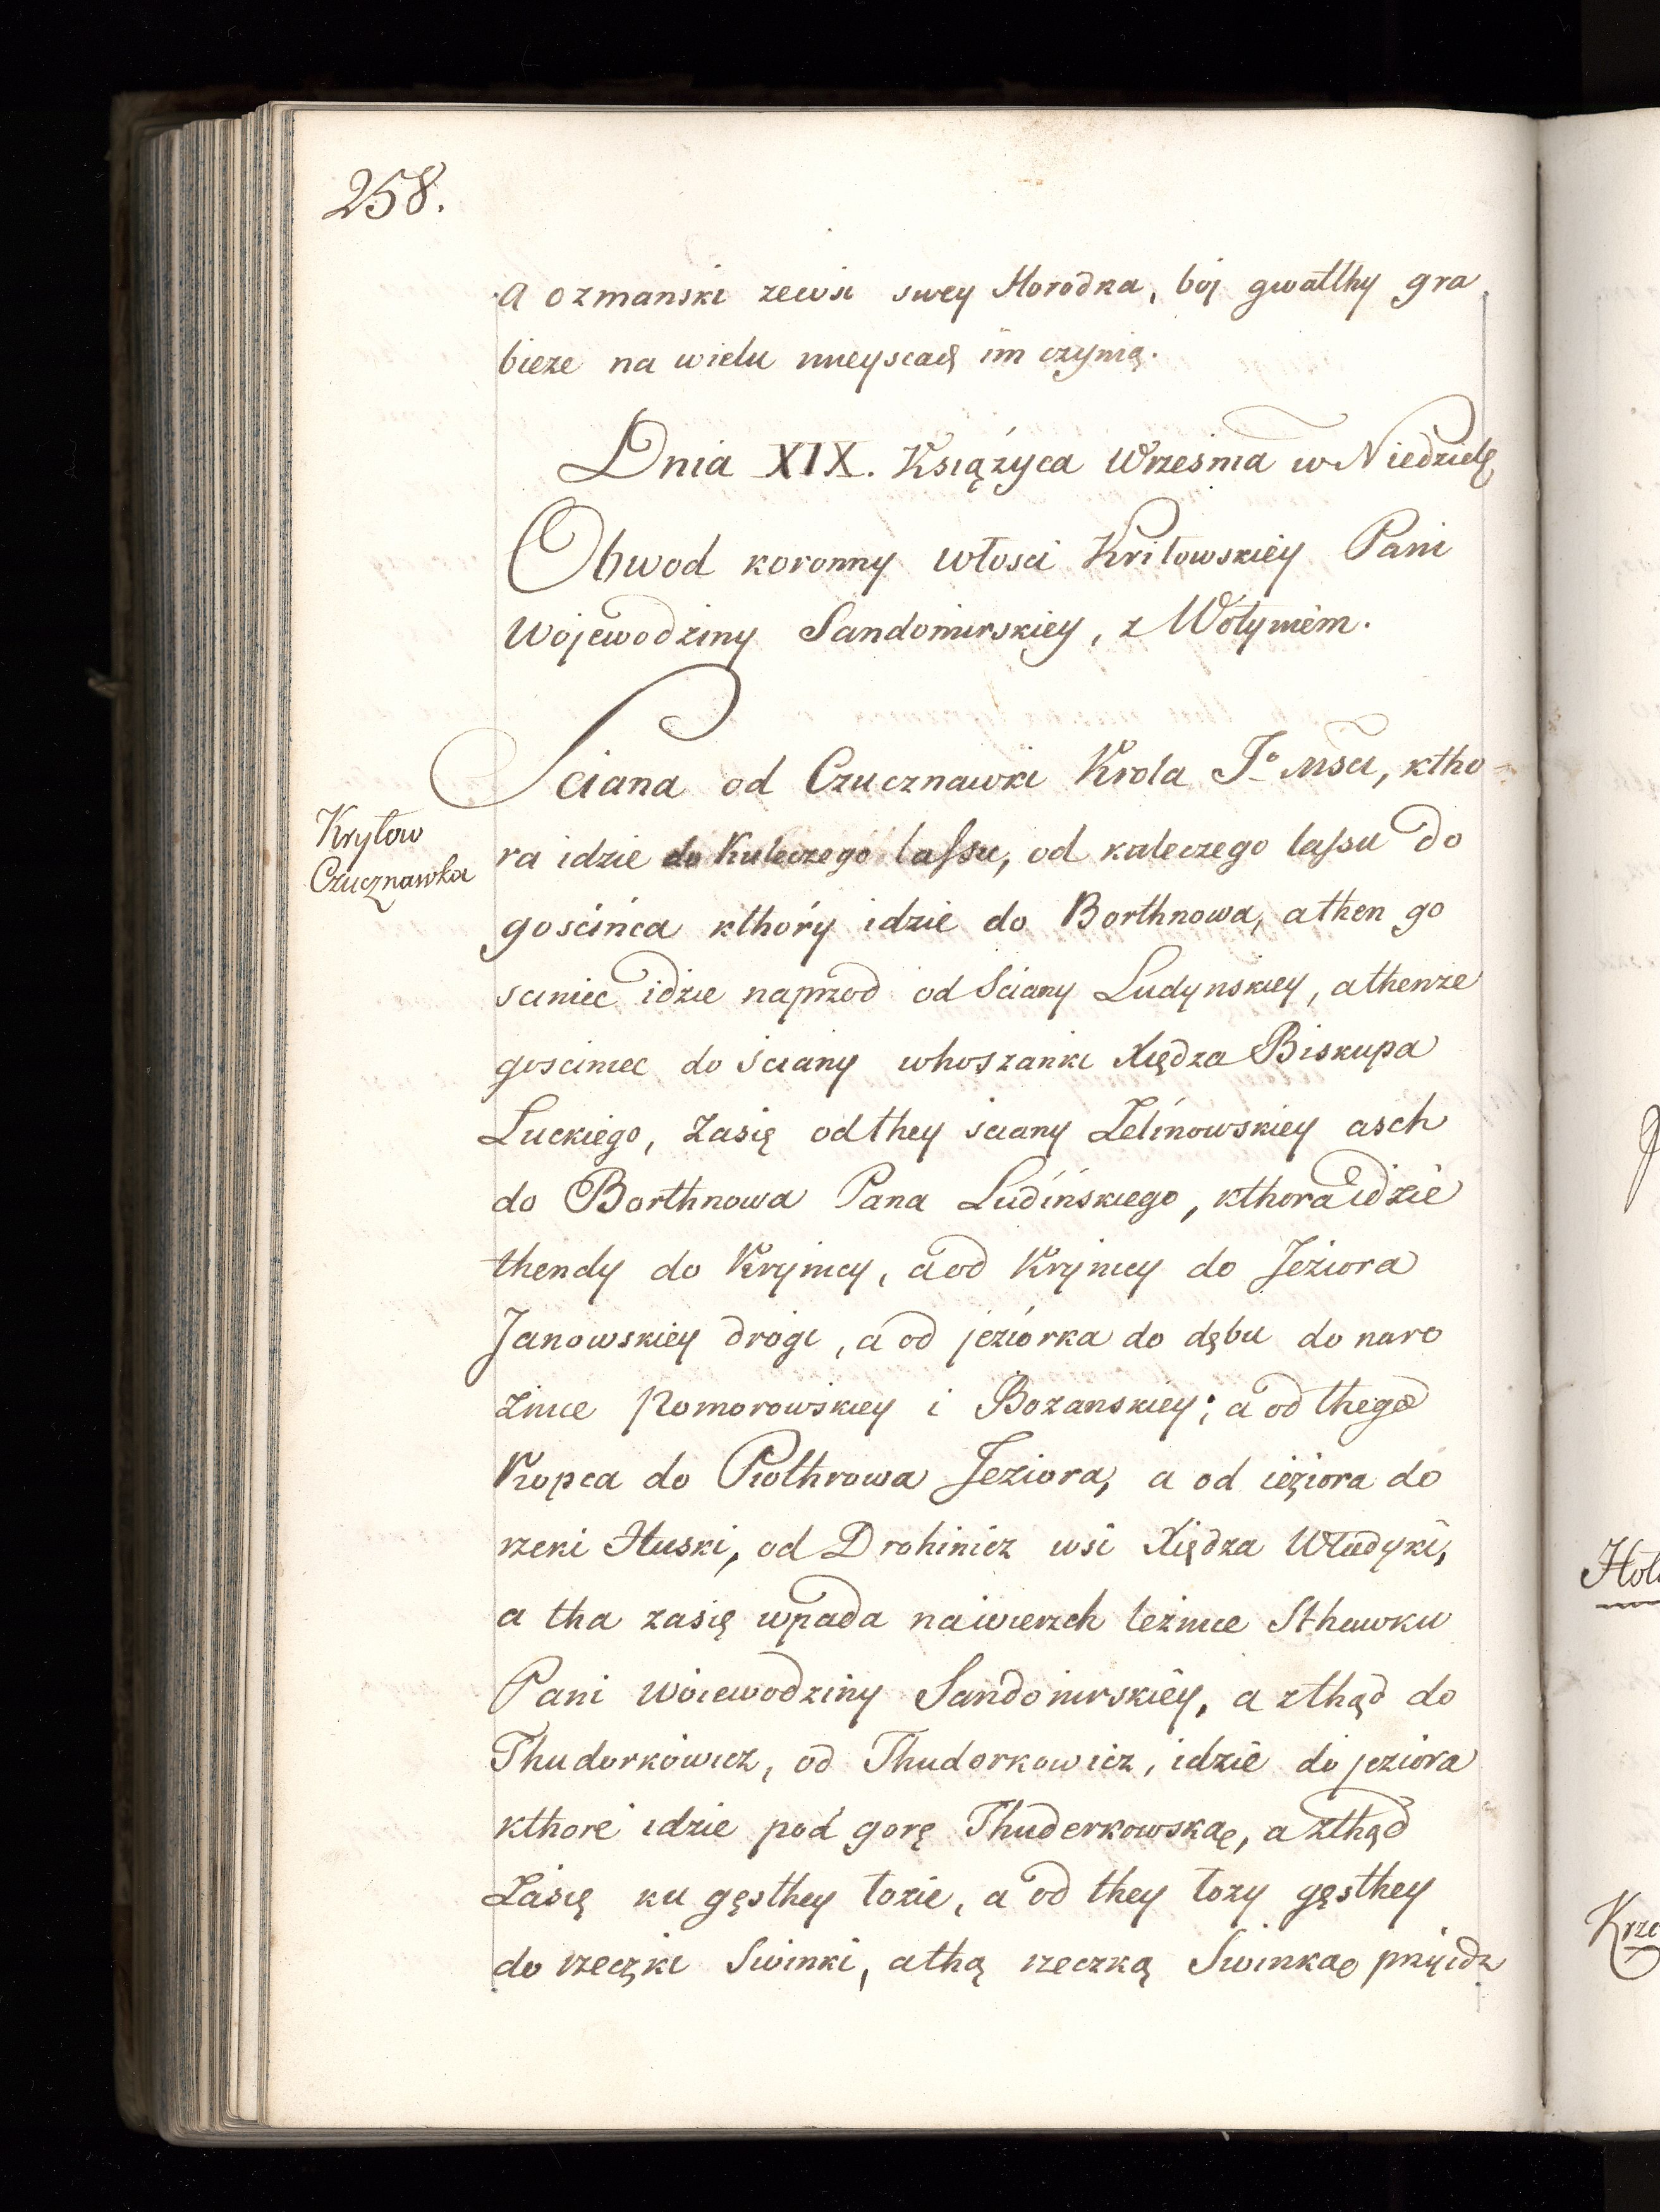 258.
a ozmanski zewsi swey Horodka, boj gwałthy gra
bieze na wielu mieyscach im czynią.
Dnia XIX. Książyca Wrzesnia w Niedzielę
Obwod koronny włosci Kriłowskiey Pani
Wojewodziny Sandomirskiey, z Wołyniem.
Sciana od Czucznawki Krola Jo Msci, ktho-
Kryłow
Czucznawka
ra idzie do Kuleczego lassu, od kuleczego lassu do
gościńca kthóry idzie do Borthnowa, a then go
sciniec idzie naprzod od Sciany Ludynskiey, a thenze
gosciniec do sciany whoszanki Xiędza Biskupa
Luckiego, Zasię od they sciany Zelinowskiey asch
do Borthnowa Pana Ludińskiego, kthora idzie
thendy do Krynicy, a od Krynicy do Jeziora
Janowskiey drogi, a od jeziórka do dębu do naro
żnice Komorowskiey i Bozanskiey; a od thego
Kopca do Piothrowa Jeziora, a od ieziora do
rzeki Huski, od Drohinicz wsi Xiędza Władyki,
a tha zasię wpada na wierzch leżnice Sthawku
Pani Woiewodziny Sandomirskiey, a zthąd do
Thudorkowicz, od Thudorkowicz, idzie do jeziora
kthore idzie pod gorę Thuderkowskąę, a zthąd
Zasię ku gęsthey łozie, a od they łozy gęsthey
do rzeczki Swinki, a thą rzeczką Swinkąę przyidz
Hoł
Krze